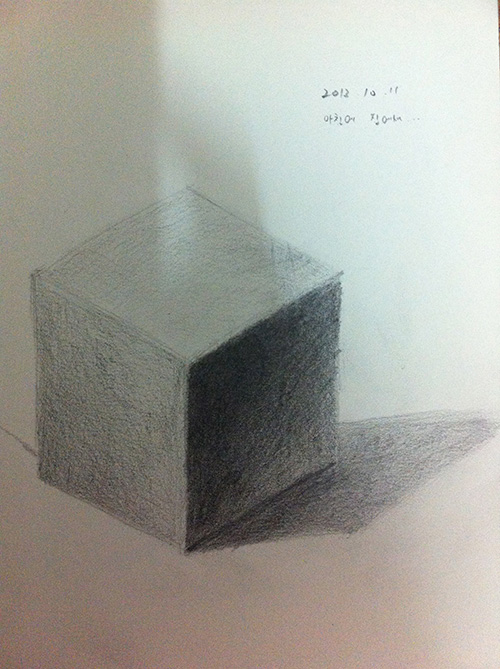 2012 10 .11
아침에 집에서...